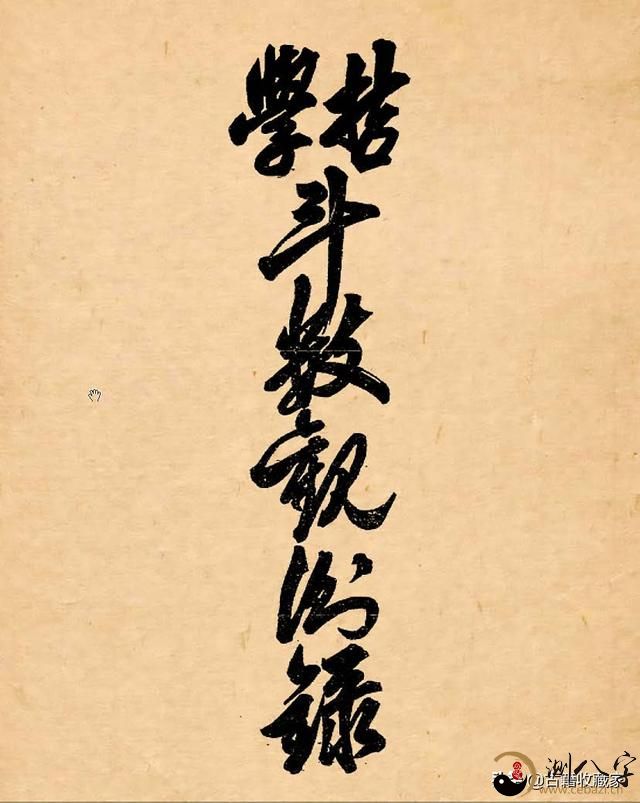 哲學
斗數觀測錄
@古籍收藏家
测八字
www.cebazi.cn